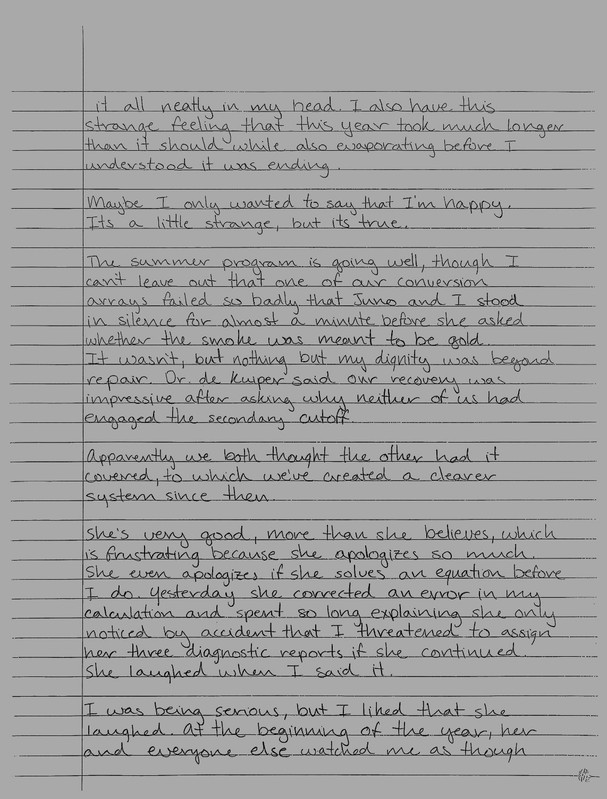 it all neatly in my head. I also have this
strange feeling that this year took much longer
than it should while also evaporating before I
understood it was ending.
Maybe I only wanted to say that I'm happy.
Its a little strange, but its true.
The summer program is going well, though I
can't leave out that one of our conversion
arrays failed so badly that Juno and I stood
in silence for almost a minute before she asked
whether the smoke was meant to be gold.
It wasn't, but nothing but my dignity was beyond
repair. Dr. de Kuiper said our recovery was
impressive after asking why neither of us had
engaged the secondary cutoff.
Apparently we both thought the other had it
covered, to which we've created a clearer
system since then.
She's very good, more than she believes, which
is frustrating because she apologizes so much.
She even apologizes if she solves an equation before
I do. Yesterday she corrected an error in my
calculation and spent so long explaining she only
noticed by accident that I threatened to assign
her three diagnostic reports if she continued.
She laughed when I said it.
I was being serious, but I liked that she
laughed. At the beginning of the year, her
and everyone else watched me as though